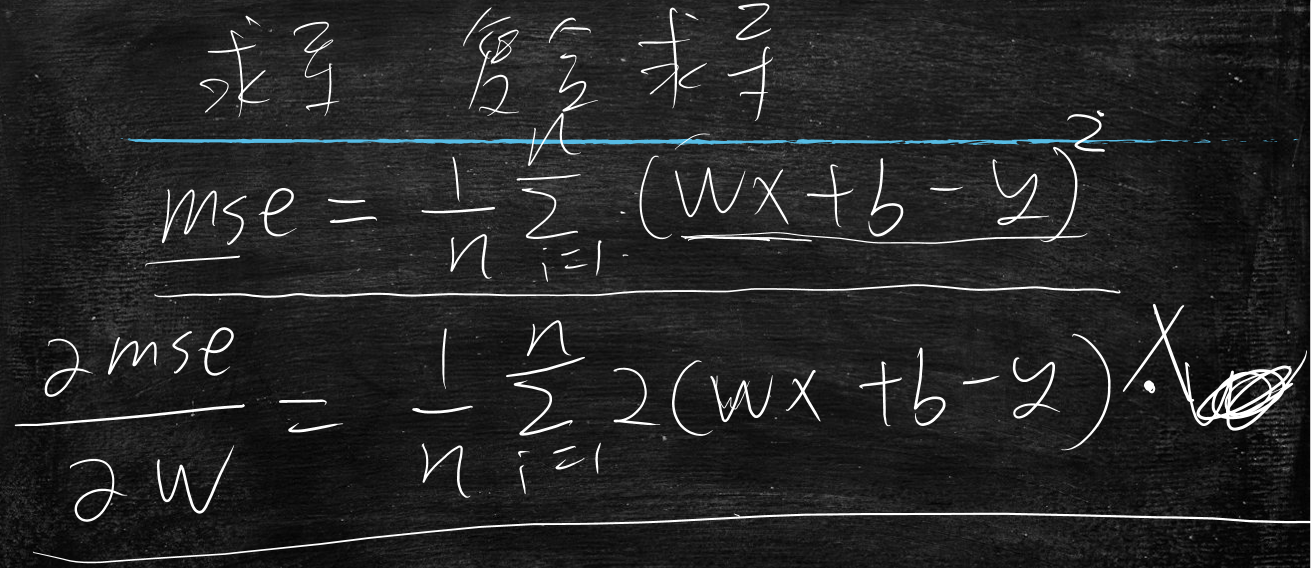 求导 复合求导
mse = \frac{1}{n} \sum_{i=1}^{n} (wx + b - y)^2
\frac{∂mse}{∂w} = \frac{1}{n} \sum_{i=1}^{n} 2(wx + b - y) · x